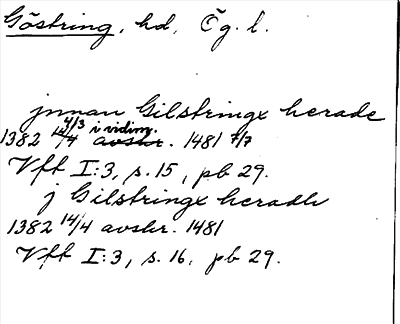 Göstring, hd, Ög. l.
jnnan Gilstringx herade
4/3 i vidim.
1382 14/4 avskr. 1481 7/7
Vff I:3, s. 15, pb 29.
j Gilstringx heradh
1382 14/4 avskr. 1481
Vff I:3, s. 16, pb 29.